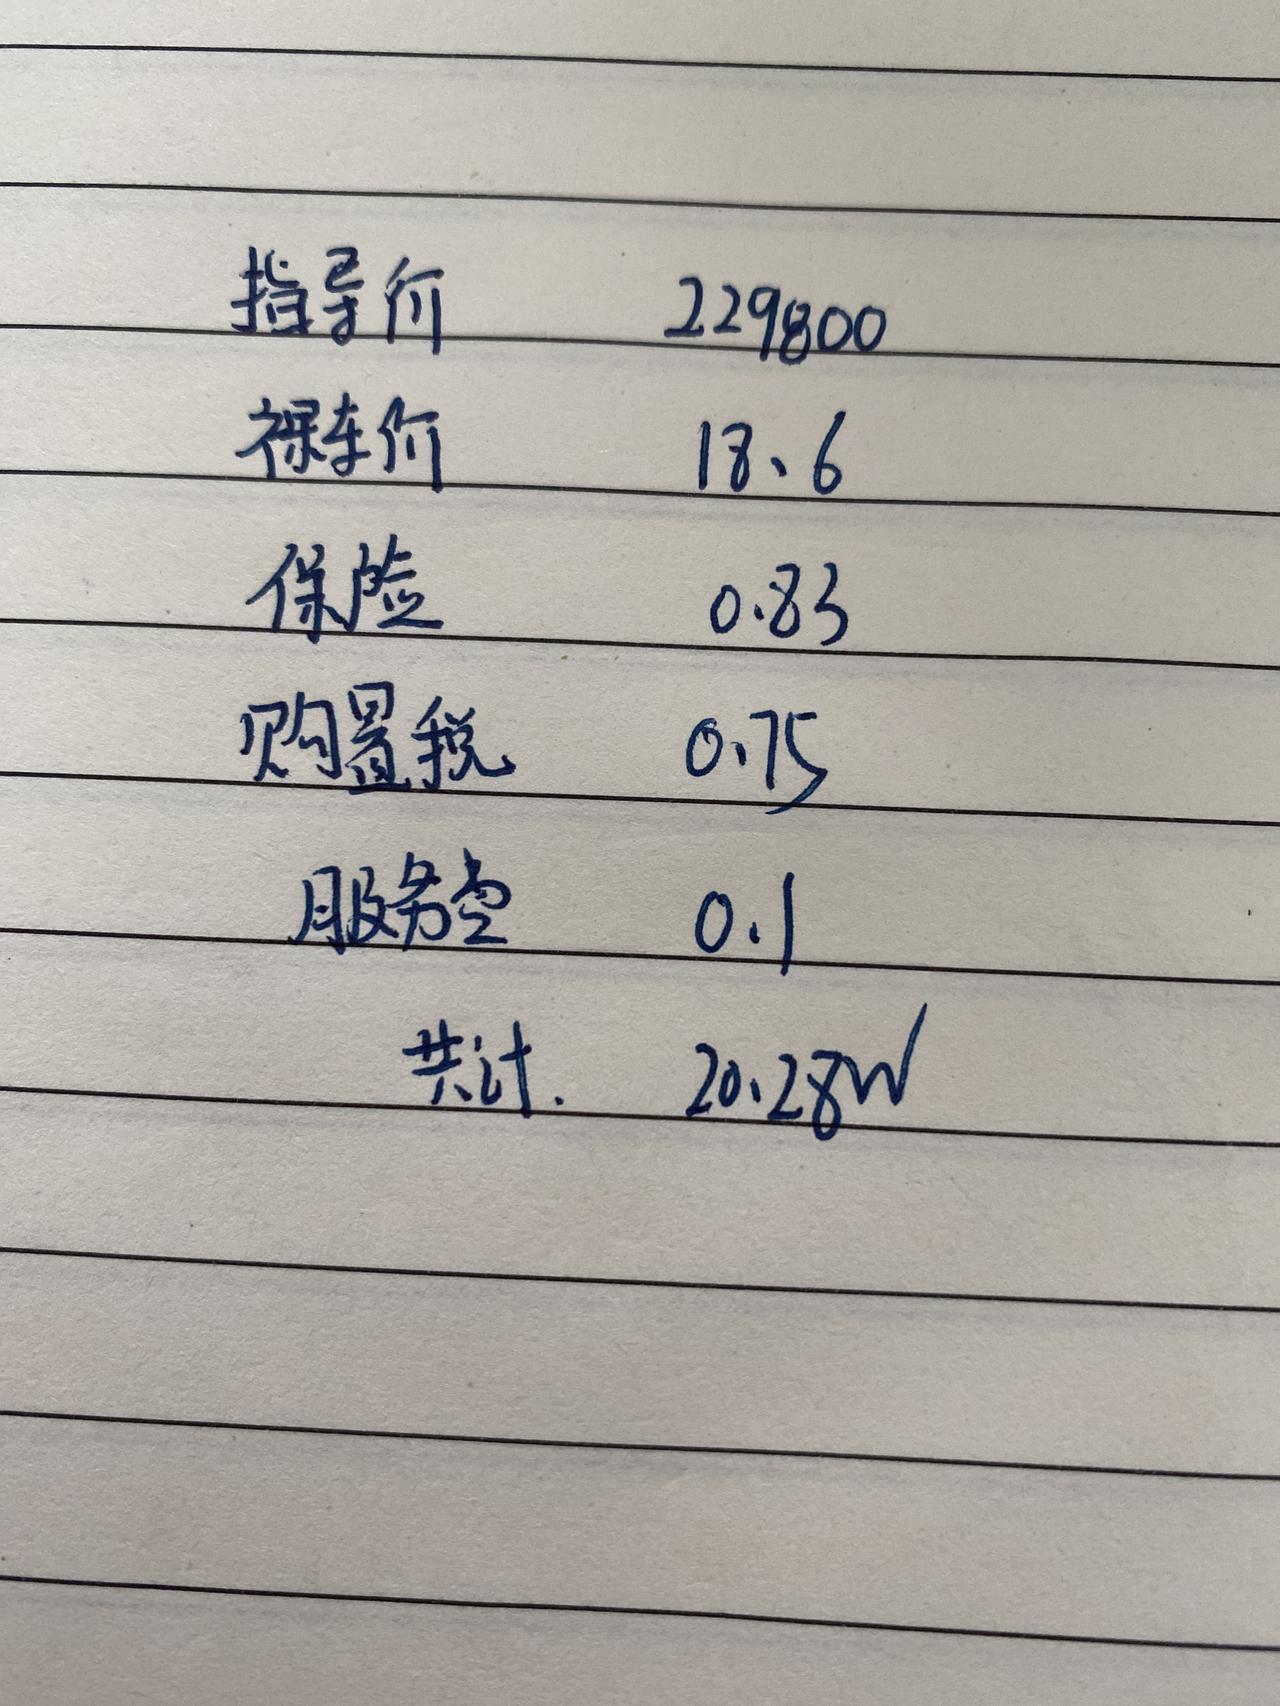 指导价 229800
裸车价 18.6
保险 0.83
购置税 0.75
服务 0.1
共计. 20.28W